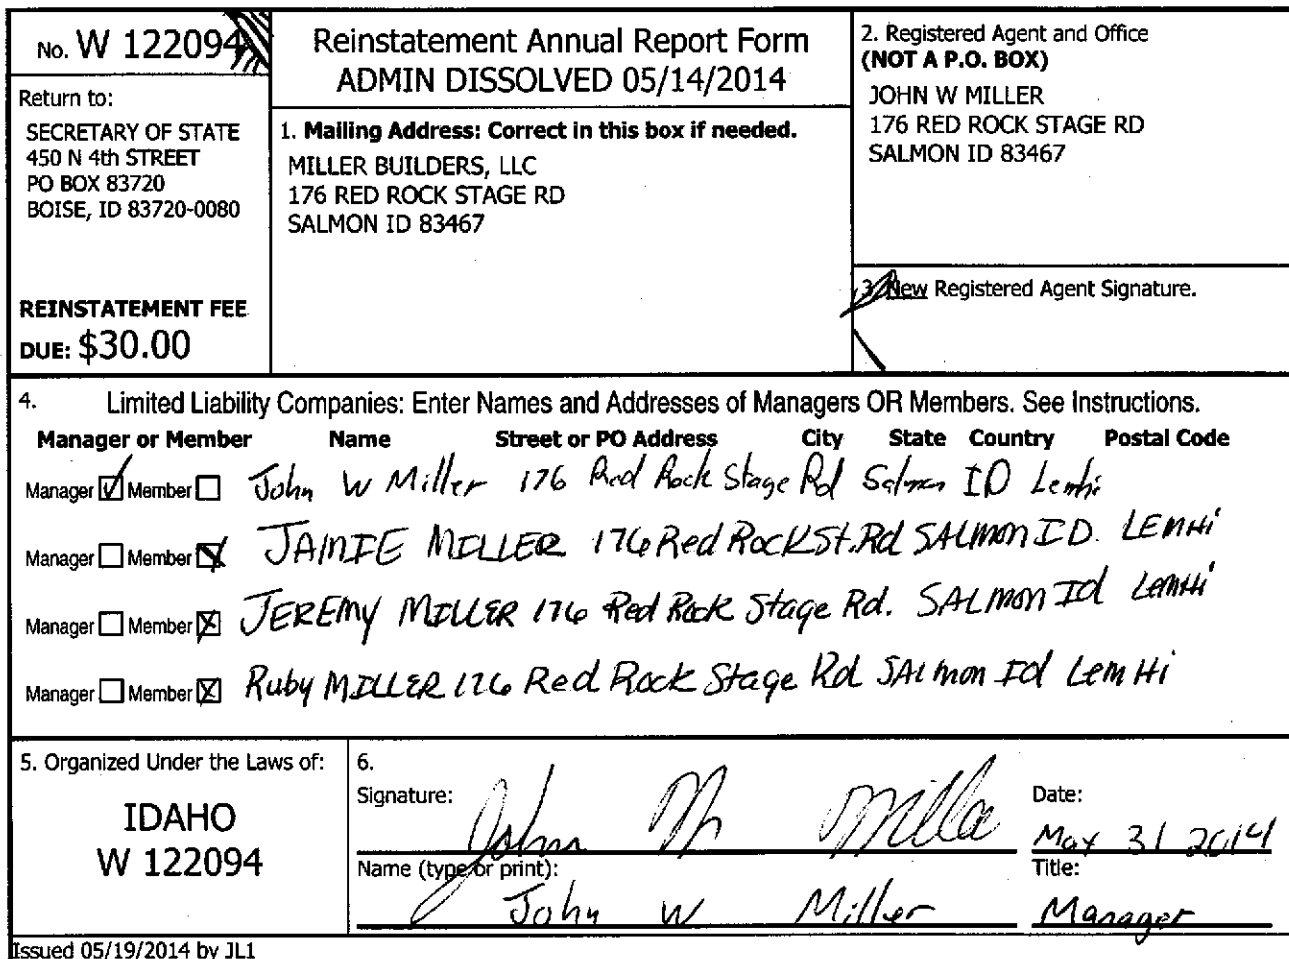 No. W 122094
Return to:
SECRETARY OF STATE
450 N 4th STREET
PO BOX 83720
BOISE, ID 83720-0080
REINSTATEMENT FEE
DUE: $30.00
Reinstatement Annual Report Form
ADMIN DISSOLVED 05/14/2014
1. Mailing Address: Correct in this box if needed.
MILLER BUILDERS, LLC
176 RED ROCK STAGE RD
SALMON ID 83467
2. Registered Agent and Office
(NOT A P.O. BOX)
JOHN W MILLER
176 RED ROCK STAGE RD
SALMON ID 83467
3. New Registered Agent Signature.
4. Limited Liability Companies: Enter Names and Addresses of Managers OR Members. See Instructions.
Manager or Member Name Street or PO Address City State Country Postal Code
Manager Member John W Miller 176 Red Rock Stage Rd Salmon ID Lemhi
Manager Member JAMIE MILLER 176 Red Rock St. Rd SALMON ID. LEMHi
Manager Member JEREMY MILLER 176 Red Rock Stage Rd. SALMON Id LEMHi
Manager Member Ruby MILLER 176 Red Rock Stage Rd SALmon Id LemHi
5. Organized Under the Laws of:
IDAHO
W 122094
6.
Signature: John W Miller
Date: May 31 2014
Name (type or print): John W Miller
Title: Manager
Issued 05/19/2014 by JL1